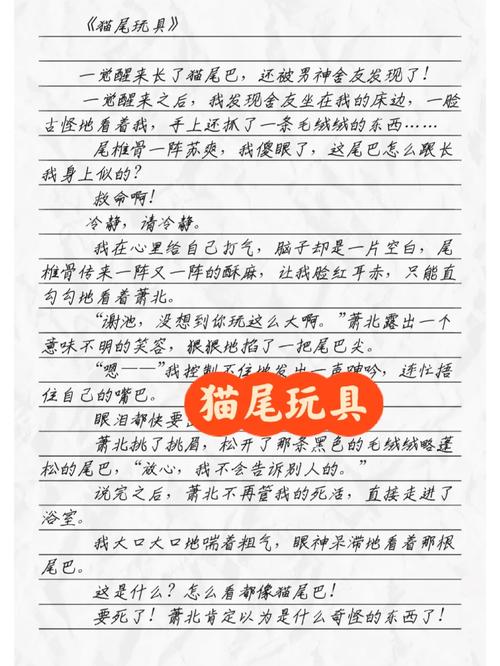 《猫尾玩具》
一觉醒来长了猫尾巴，还被男神舍友发现了！
一觉醒来之后，我发现舍友坐在我的床边，一脸
古怪地看着我，手上还抓了一条毛绒绒的东西……
尾椎骨一阵苏爽，我傻眼了，这尾巴怎么跟长
我身上似的？
救命啊！
冷静，请冷静。
我在心里给自己打气，脑子却是一片空白，尾
椎骨传来一阵又一阵的酥麻，让我脸红耳赤，只能直
勾勾地看着萧北。
“谢池，没想到你玩这么大啊。”萧北露出一个
意味不明的笑容，狠狠地掐了一把尾巴尖。
“嗯——”我控制不住地发出一声呻吟，连忙捂
住自己的嘴巴。
猫尾玩具
眼泪都快要
萧北挑了挑眉，松开了那条黑色的毛绒绒略蓬
松的尾巴，“放心，我不会告诉别人的。”
说完之后，萧北不再管我的死活，直接走进了
浴室。
我大口大口地喘着粗气，眼神呆滞地看着那根
尾巴。
这是什么？怎么看都像猫尾巴！
要死了！萧北肯定以为是什么奇怪的东西了！